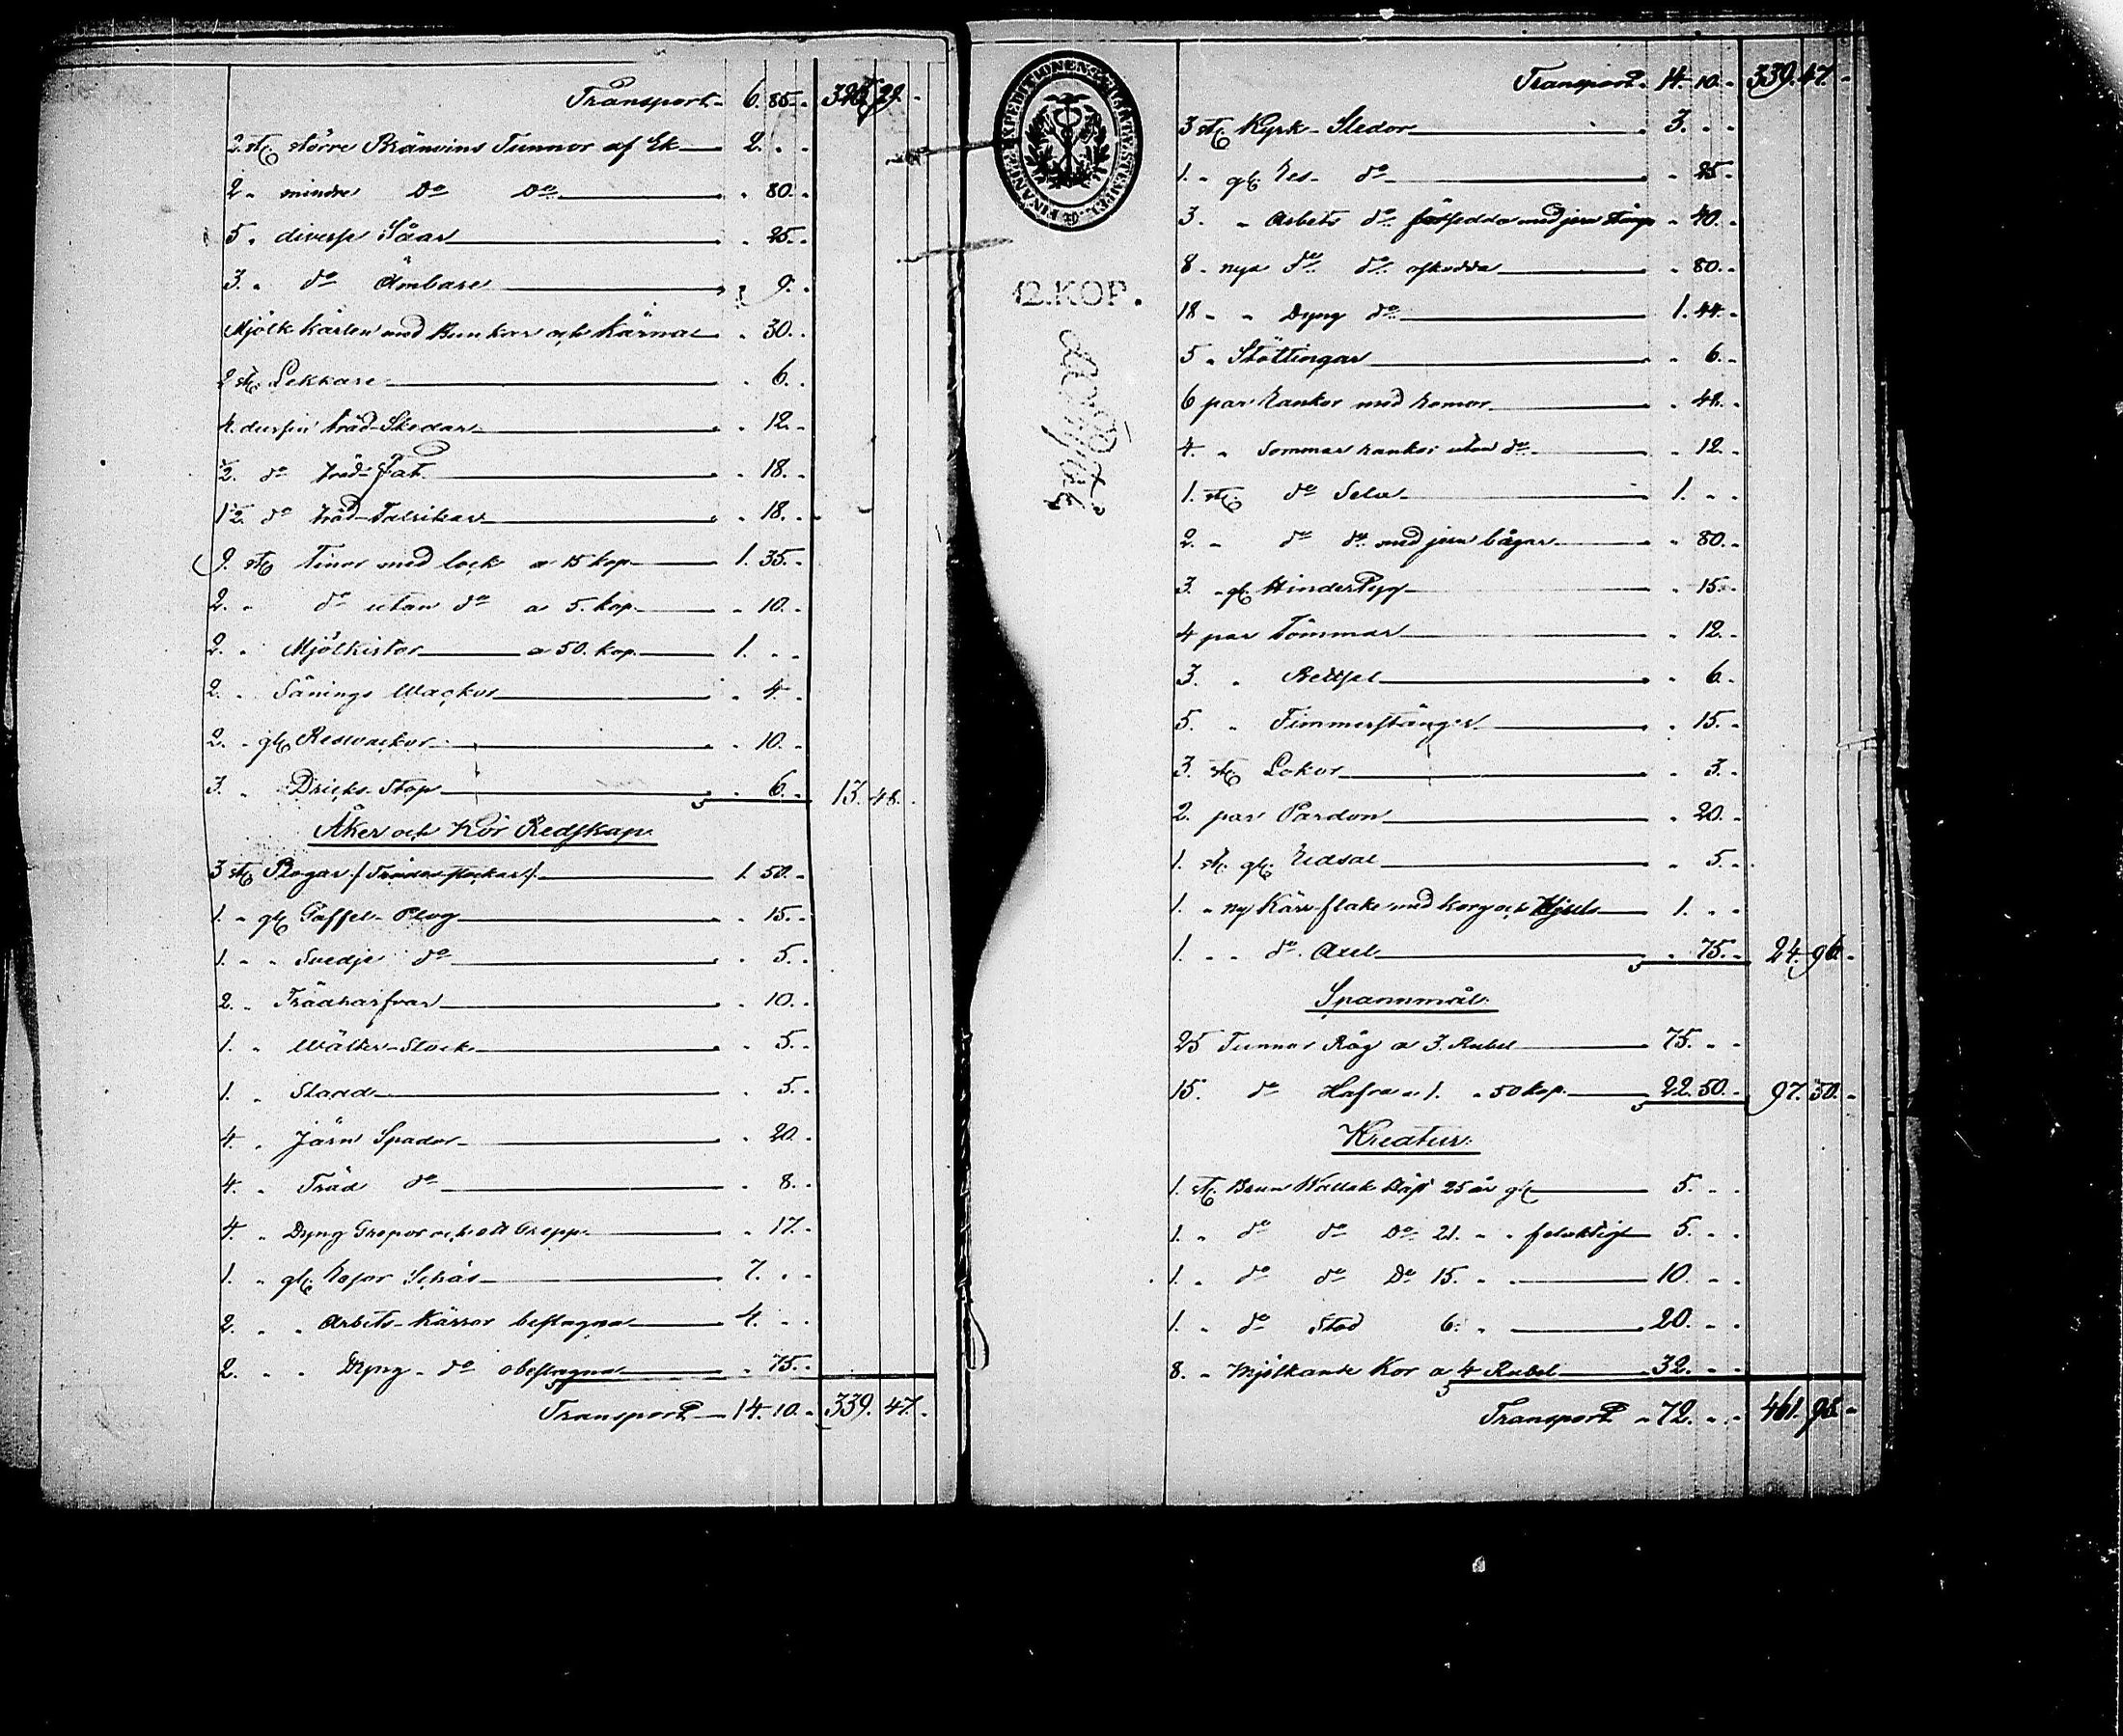 Transport 6. 85.
2 stc större Bränvins Tunnor af Ek 2. . .
2 " mindre Do Do " 80.
5 " diverse Såar " 25.
3. " do Ämbare " 9.
Mjölk kärlen med Bunkar och Kärnar " 30.
2 stc Lekkare " 6.
4. dussin träd-Skedar " 12.
1/2 do träd-Fat " 18.
1 1/2 do träd-Talrikar " 18.
9. stc Tinor med lock a 15 kop 1. 35.
2. " do utan do a 5. kop " 10.
2. " Mjölkistor a 50. kop. 1. . .
2. " Sånings Wackor " 4.
2. " gl. Reswackor " 10.
3. " Dricks Stop " 6. 13. 48.
Åker och Kör Redskap
3 stc Plogar 1. 50.
1. " gl. Gaffel-Plog " 15.
1. " " Svedje do " 5.
2. " Trädharfvar " 10.
1. " Wälter-Stock " 5.
1. " " 5.
4. " Järn Spador " 20.
4. " Träd do " 8.
4. " Dyng Grepor och ett Grepp " 17.
1. " gl. Schäs 7. . .
2. " " Arbets-Kärror beslagna 4. . .
2. " " Dyng-do obeslagna " 75.
Transport 14. 10. 339. 47.
FINANCE EXPEDITIONENS CHARTÆ STEMPEL
12. KOP.
Transport 14. 10. 339. 47.
3 stc Kyrk-Sledor 3. . .
1. " gl. Res- do " 25
3. " Arbets do med jern " 40.
8 " nya do do oskodda " 80.
18 " " Dyng do 1. 44.
5 " Stöttingar " 6.
6 par Rankor med " 42.
4. " Sommar rankor utan do " 12.
1. stc do Sela 1. . .
2. " do do med jern bågar " 80.
3. " gl. Hinder Tyg " 15.
4 par Tömmar " 12.
3. " Betssel " 6.
5. " Fimmerstänger " 15.
3. stc Lokor " 3.
2. par Pardon " 20.
1. st. gl. " 5.
1. " ny Kärr-flake med korg och Hjuls 1. . .
1. " " do Axel " 75. 24. 96.
Spannmål
25 Tunnor Råg a 3. Rubel 75. . .
15. do Hafra a 1. " 50 kop. 22. 50. 97. 50.
Kreatur
1. st. Brun Wallak Häst 25 år gl 5. . .
1. " do do Do 21. " " felaktig 5. . .
1. " do do Do 15. " " 10. . .
1. " do Sto 6. " 20. . .
8. " Mjölkande Kor a 4 Rubel 32. . .
Transport 72. . . 461. 93.